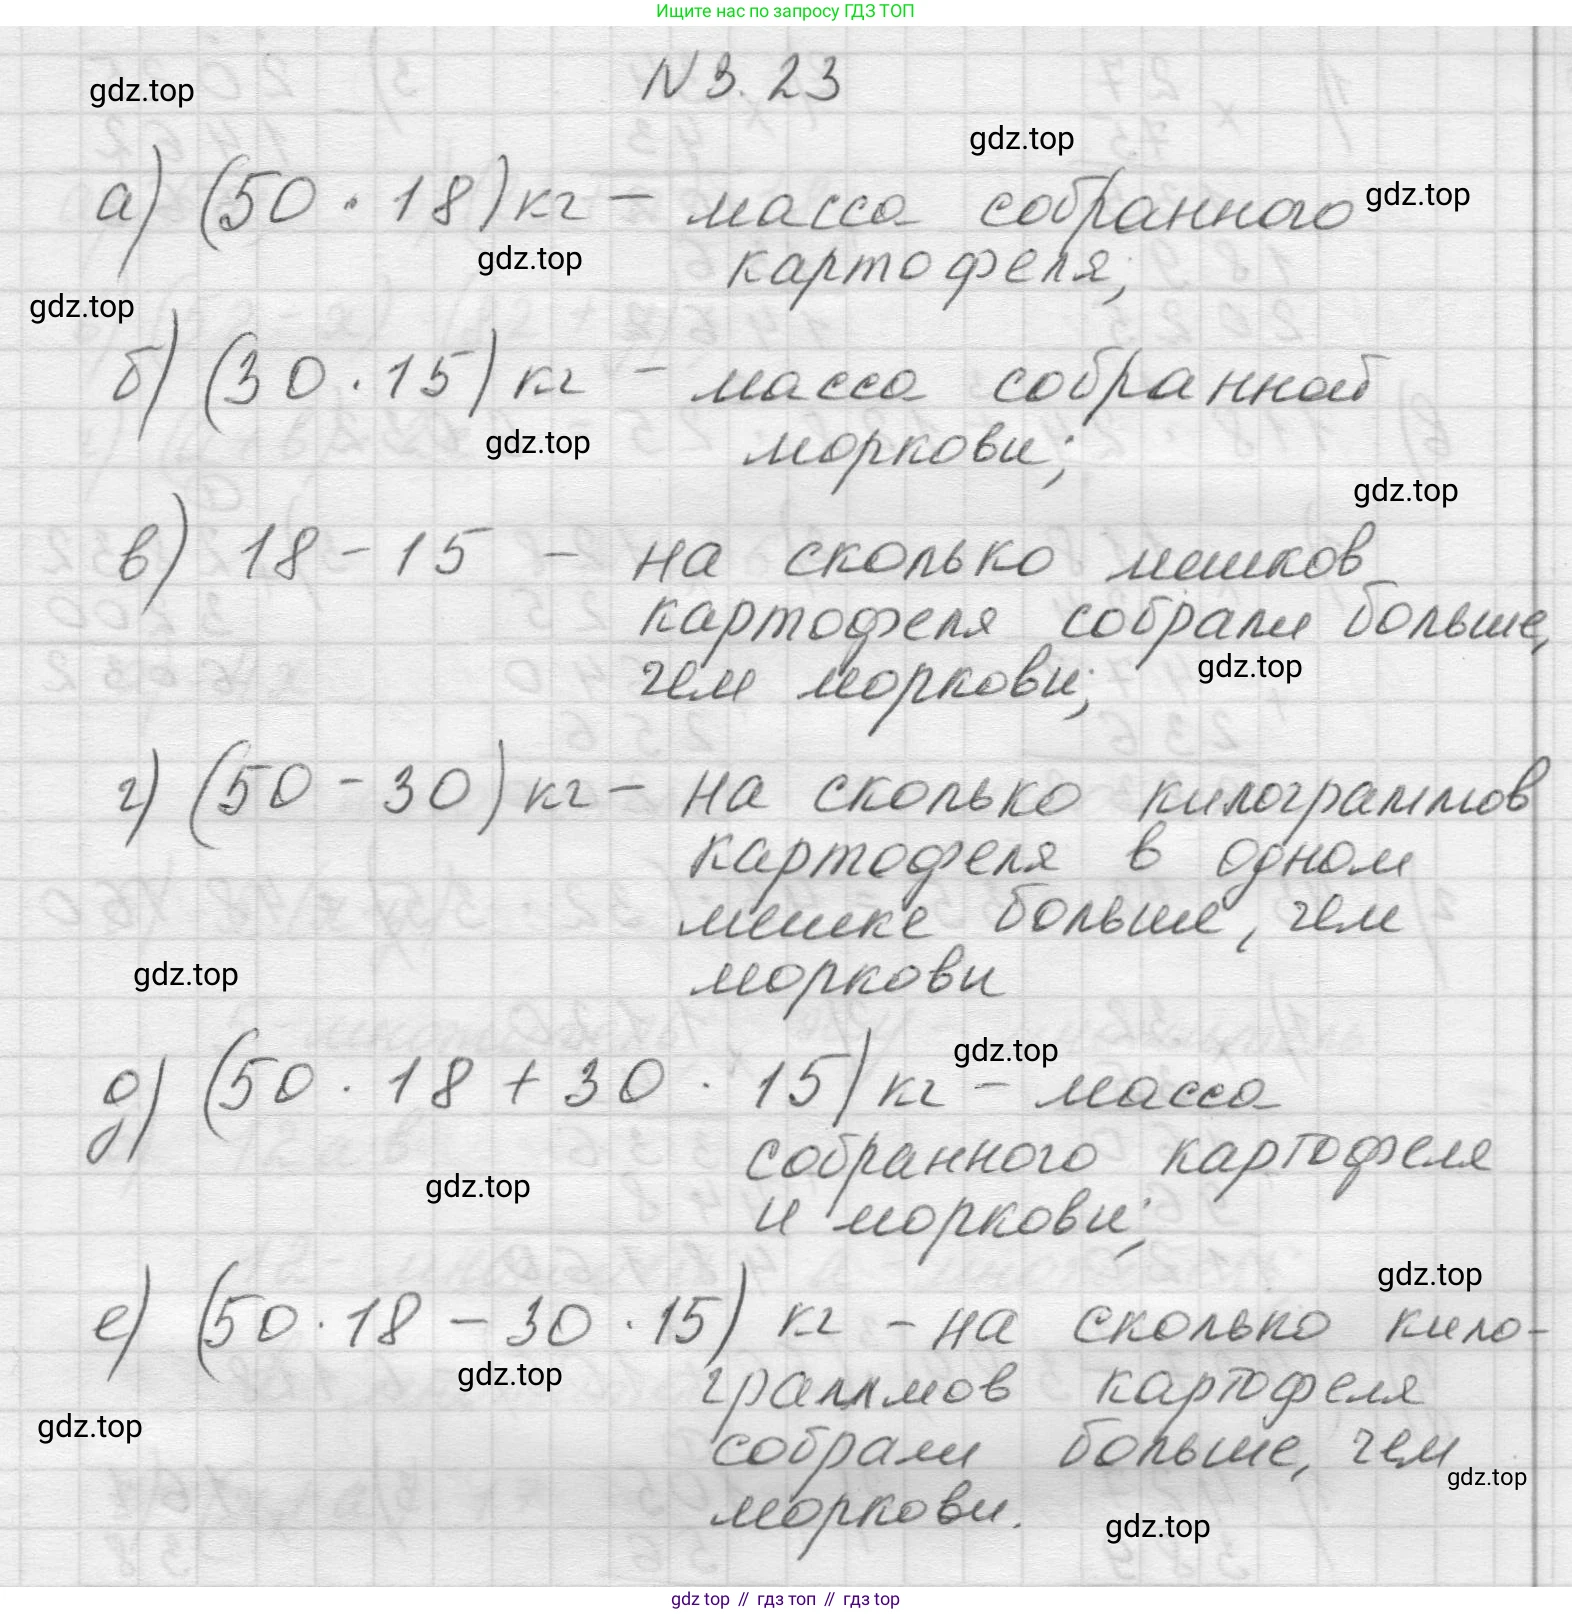 Ищите нас по запросу ГДЗ ТОП
N 3.23
gdz.top
gdz.top
а) (50 · 18) кг – масса собранного
gdz.top
картофеля;
gdz.top
gdz.top
б) (30 · 15) кг – масса собранной
моркови;
gdz.top
gdz.top
в) 18 – 15 – на сколько мешков
картофеля собрали больше,
чем моркови;
gdz.top
г) (50 – 30) кг – на сколько килограммов
картофеля в одном
мешке больше, чем
моркови
gdz.top
gdz.top
д) (50 · 18 + 30 · 15) кг – масса
собранного картофеля
gdz.top
и моркови;
gdz.top
е) (50 · 18 – 30 · 15) кг – на сколько кило-
gdz.top
граммов картофеля
gdz.top
собрали больше, чем
gdz.top
моркови.
gdz.top
gdz top // гдз топ // гдз top